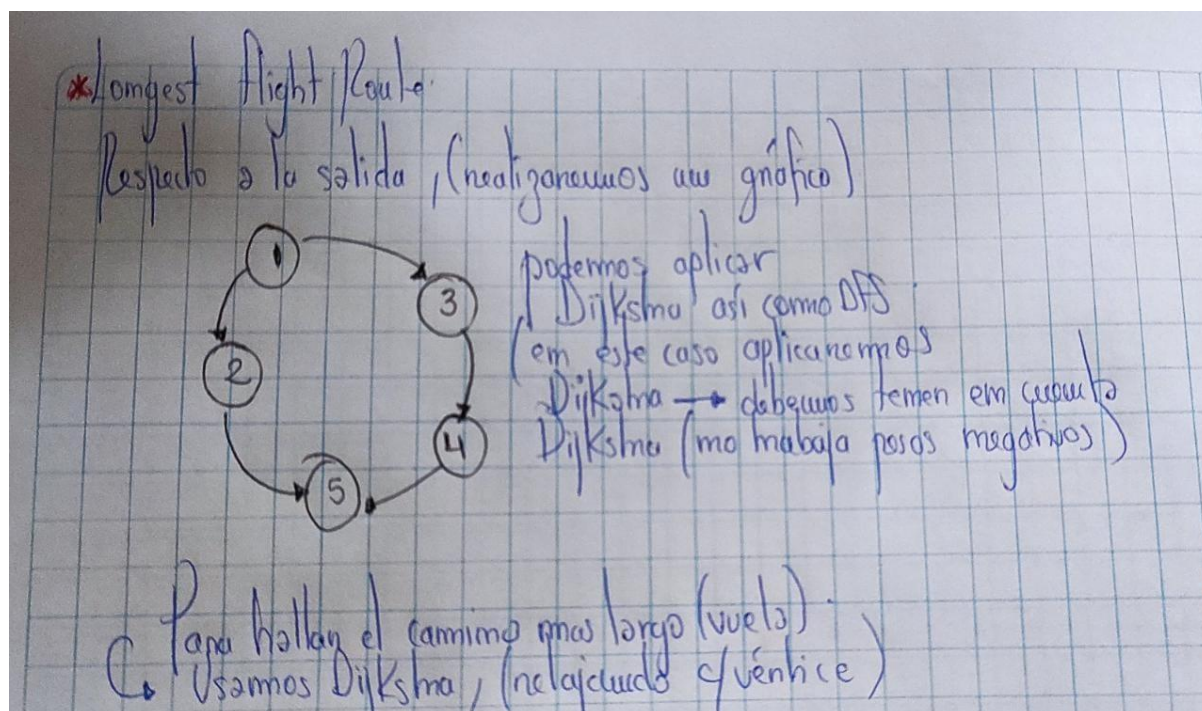 *Longest flight Route.
Respecto a la salida, (realizaremos un gráfico)
1
podemos aplicar
3
Dijksma así como DFS.
(en este caso aplicaremos
2
Dijksma → debemos tener en cuenta
4
Dijksma (no trabaja pesos negativos)
5
Para hallar el camino mas largo (vuelo).
Usamos Dijksma, (relajando c/vértice)